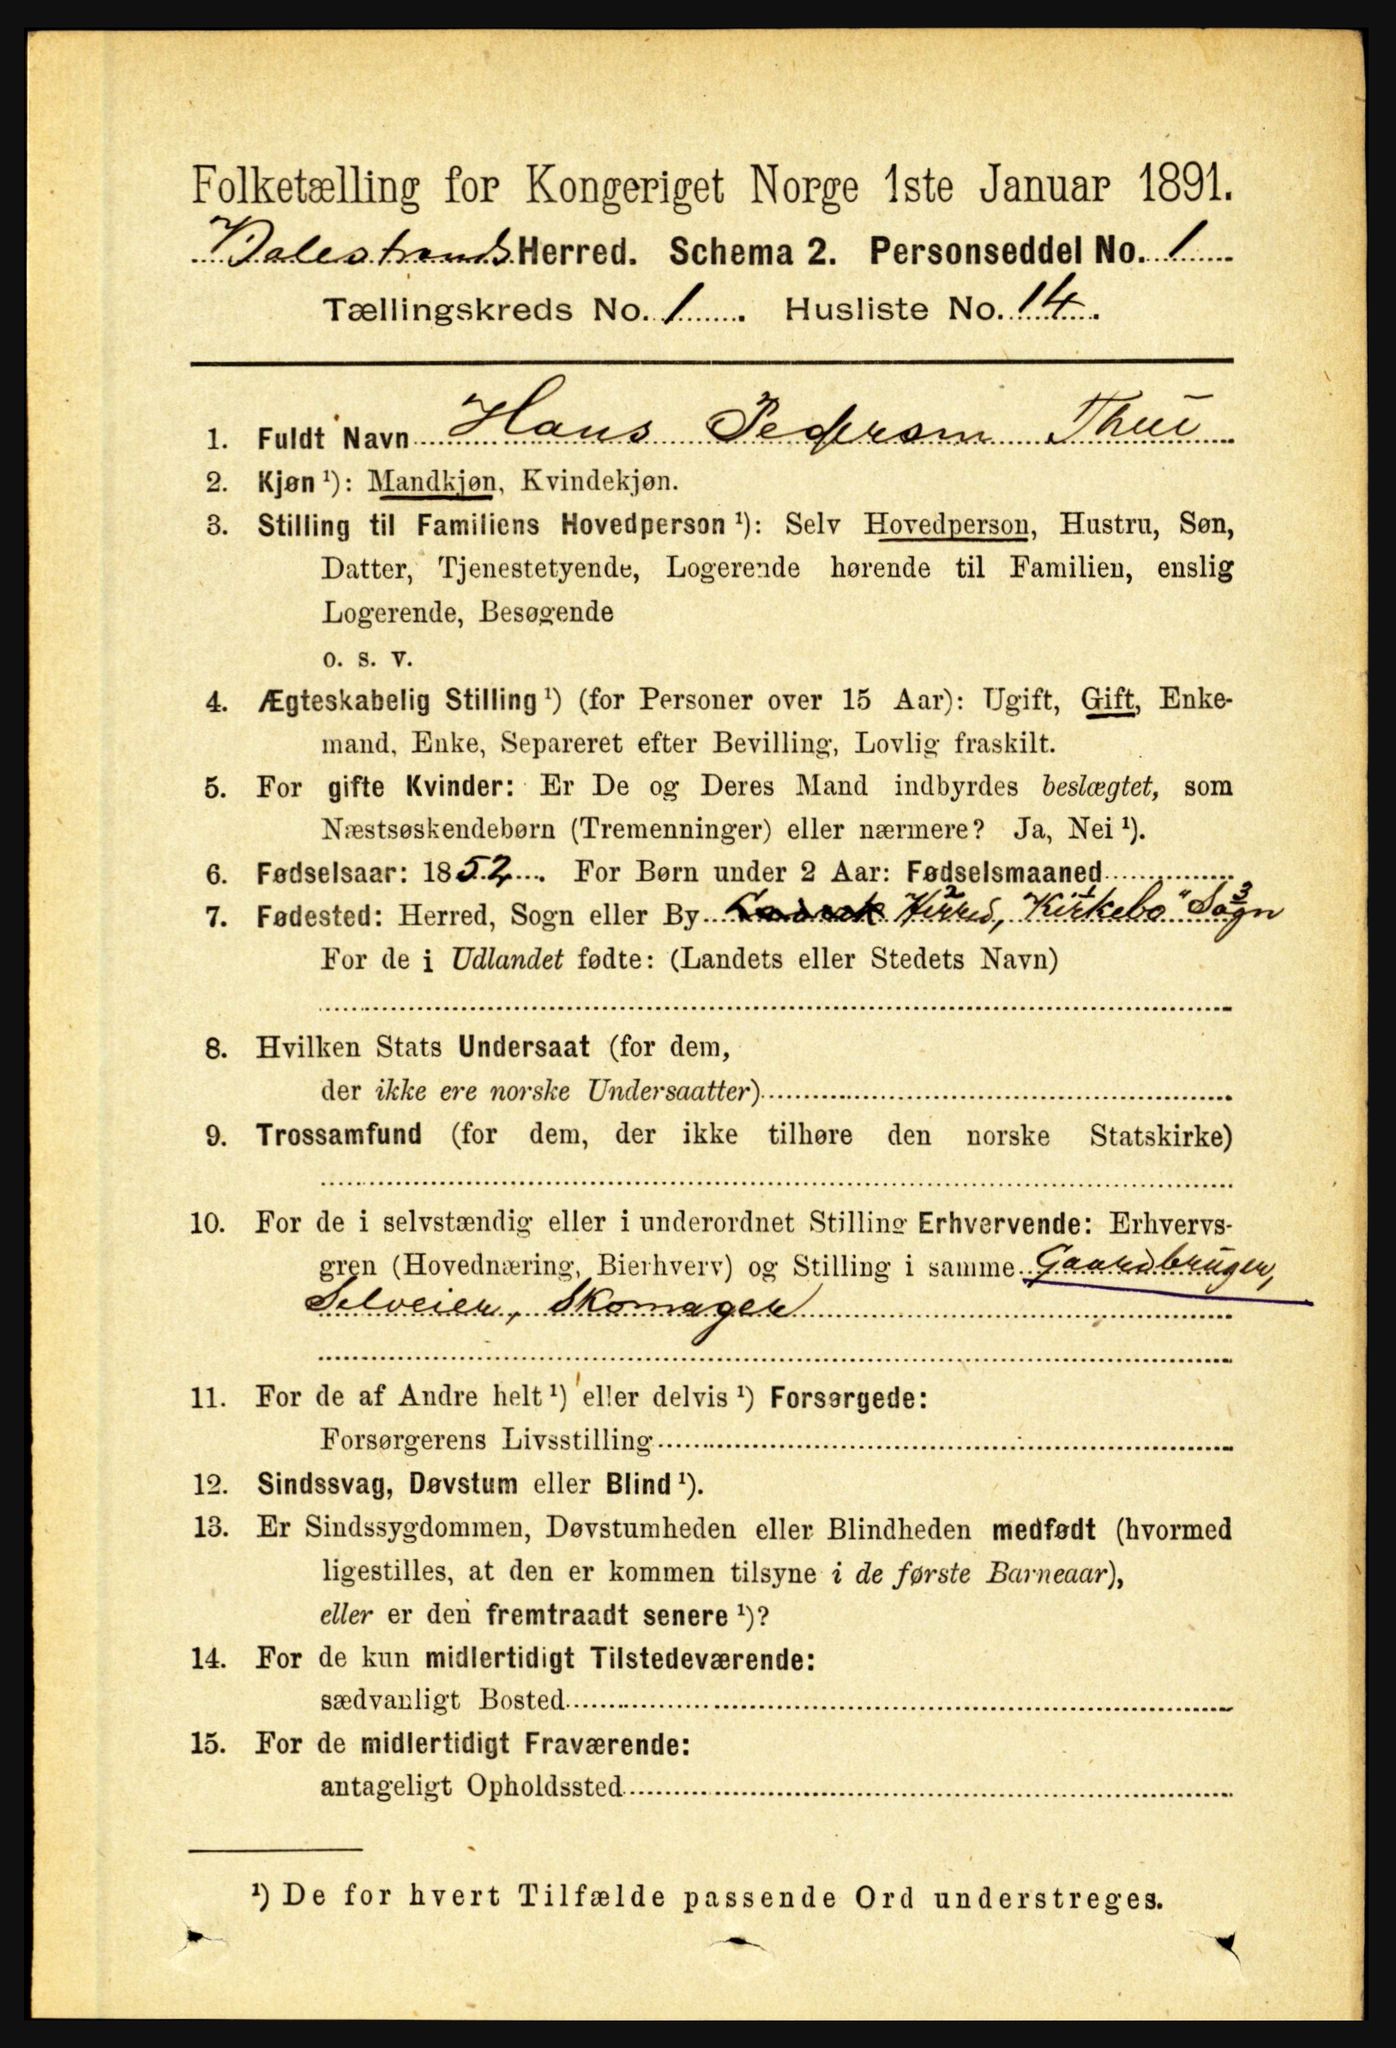 Folketælling for Kongeriget Norge 1ste Januar 1891.
Balestrands Herred. Schema 2. Personseddel No. 1
Tællingskreds No. 1. Husliste No. 14.
1. Fuldt Navn Hans Pedersen Thue
2. Kjøn ¹): Mandkjøn, Kvindekjøn.
3. Stilling til Familiens Hovedperson ¹): Selv Hovedperson, Hustru, Søn,
Datter, Tjenestetyende, Logerende hørende til Familien, enslig
Logerende, Besøgende
o. s. v.
4. Ægteskabelig Stilling ¹) (for Personer over 15 Aar): Ugift, Gift, Enke-
mand, Enke, Separeret efter Bevilling, Lovlig fraskilt.
5. For gifte Kvinder: Er De og Deres Mand indbyrdes beslægtet, som
Næstsøskendebørn (Tremenninger) eller nærmere? Ja, Nei ¹).
6. Fødselsaar: 1852. For Børn under 2 Aar: Fødselsmaaned
7. Fødested: Herred, Sogn eller By Herred, 2 Kirkebø 1 Sogn 3
For de i Udlandet fødte: (Landets eller Stedets Navn)
8. Hvilken Stats Undersaat (for dem,
der ikke ere norske Undersaatter)
9. Trossamfund (for dem, der ikke tilhøre den norske Statskirke)
10. For de i selvstændig eller i underordnet Stilling Erhvervende: Erhvervs-
gren (Hovednæring, Bierhverv) og Stilling i samme Gaardbruger,
Selveier, Skomager
11. For de af Andre helt ¹) eller delvis ¹) Forsørgede:
Forsørgerens Livsstilling
12. Sindssvag, Døvstum eller Blind ¹).
13. Er Sindssygdommen, Døvstumheden eller Blindheden medfødt (hvormed
ligestilles, at den er kommen tilsyne i de første Barneaar),
eller er den fremtraadt senere ¹)?
14. For de kun midlertidigt Tilstedeværende:
sædvanligt Bosted
15. For de midlertidigt Fraværende:
antageligt Opholdssted
¹) De for hvert Tilfælde passende Ord understreges.